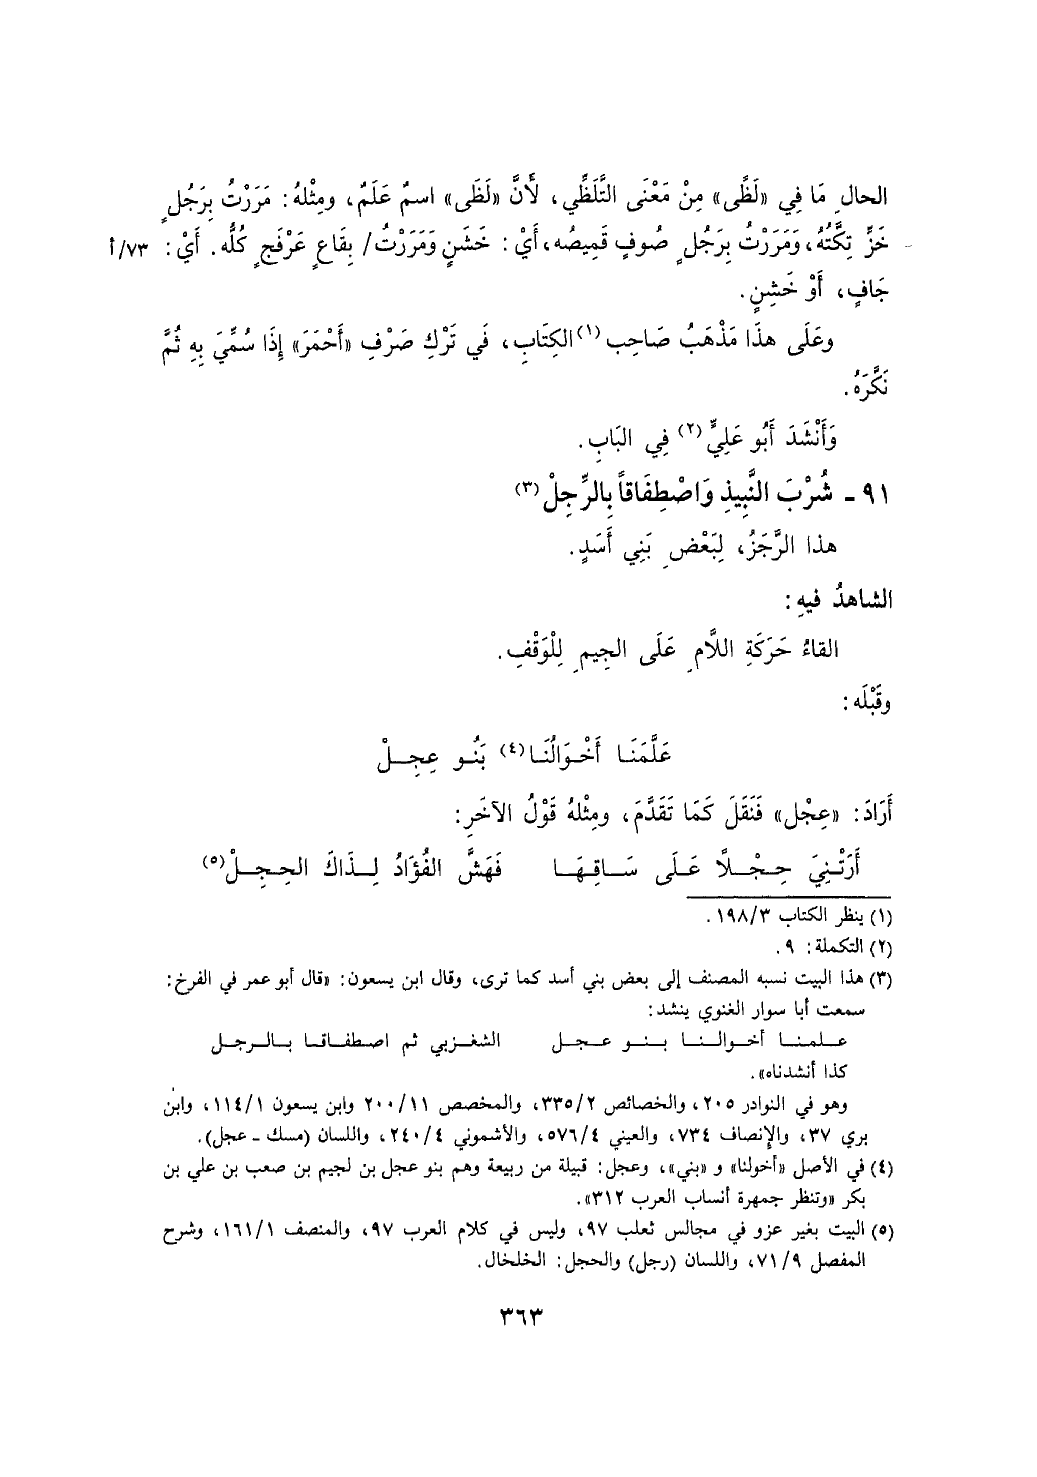 الحالِ مَا فِي «لَظَّى» مِنْ مَعْنَى التَّلَظِّي، لأَنَّ «لَظَى» اسمٌ عَلَمٌ، ومِثْلهُ: مَرَرْتُ بِرَجُلٍ
خَزٍّ تِكَّتُهُ، وَمَرَرْتُ بِرَجُلٍ صُوفٍ قَمِيصُه، أَيْ: خَشَنٍ وَمَرَرْتُ/ بِقَاعٍ عَرْفَجٍ كُلُّه. أَيْ: ٧٣/أ
جَافٍ، أَوْ خَشِنٍ.
وعَلَى هذَا مَذْهَبُ صَاحِب (١) الكِتَابِ، فَي تَرْكِ صَرْفِ «أَحْمَرَ» إِذَا سُمِّيَ بِهِ ثُمَّ
نَكَّرَهُ.
وَأَنْشَدَ أَبُو عَلِيٍّ (٢) فِي البَابِ.
٩١ - شُرْبَ النَّبِيذِ وَاصْطِفَاقاً بِالرِّجِلْ (٣)
هذا الرَّجَزُ، لِبَعْضِ بَنِي أَسَدٍ.
الشاهدُ فيهِ:
القاءُ حَرَكَةِ اللَّامِ عَلَى الجِيمِ لِلْوَقْفِ.
وقَبْلَه:
عَلَّمَنَا أَخْوَالُنَا (٤) بَنُو عِجِلْ
أَرَادَ: «عِجْل» فَنَقَلَ كَمَا تَقَدَّمَ، ومِثْلهُ قَوْلُ الآخَرِ:
أَرَتْنِيَ حِجْلاً عَلَى سَاقِهَا فَهَشَّ الفُؤَادُ لِذَاكَ الحِجِلْ (٥)
(١) ينظر الكتاب ١٩٨/٣.
(٢) التكملة: ٩.
(٣) هذا البيت نسبه المصنف إلى بعض بني أسد كما ترى، وقال ابن يسعون: «قال أبو عمر في الفرخ:
سمعت أبا سوار الغنوي ينشد:
علمنا أخوالنا بنو عجل الشغزبي ثم اصطفاقا بالرجل
كذا أنشدناه».
وهو في النوادر ٢٠٥، والخصائص ٣٣٥/٢، والمخصص ٢٠٠/١١ وابن يسعون ١١٤/١، وابن
بري ٣٧، والإنصاف ٧٣٤، والعيني ٥٧٦/٤، والأشموني ٢٤٠/٤، واللسان (مسك - عجل).
(٤) في الأصل «أخولنا» و «بني»، وعجل: قبيلة من ربيعة وهم بنو عجل بن لجيم بن صعب بن علي بن
بكر «وتنظر جمهرة أنساب العرب ٣١٢».
(٥) البيت بغير عزو في مجالس ثعلب ٩٧، وليس في كلام العرب ٩٧، والمنصف ١٦١/١، وشرح
المفصل ٧١/٩، واللسان (رجل) والحجل: الخلخال.
٣٦٣